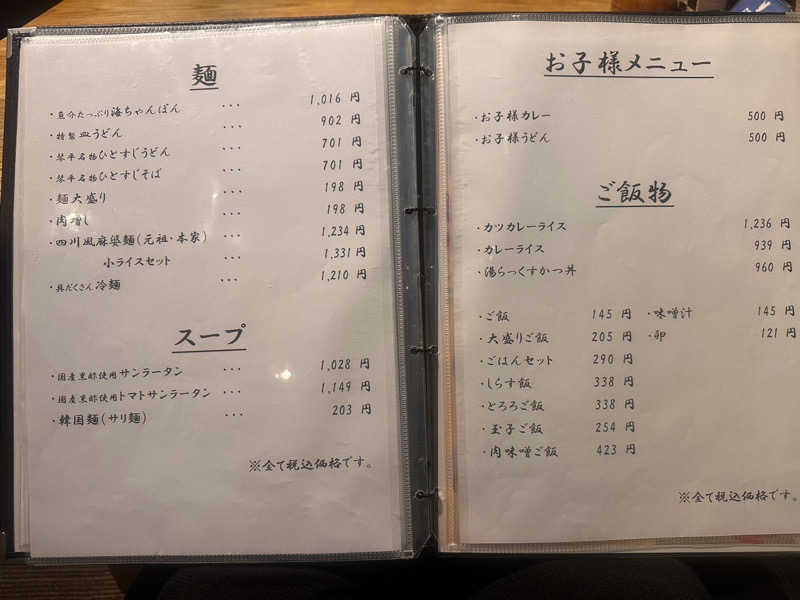 麺
・魚介たっぷり海ちゃんぽん ・・・ 1,016 円
・特製 皿うどん ・・・ 902 円
・琴平名物ひとすじうどん ・・・ 701 円
・琴平名物ひとすじそば ・・・ 701 円
・麺大盛り ・・・ 198 円
・肉増し ・・・ 198 円
・四川風麻婆麺(元祖・本家) ・・・ 1,234 円
小ライスセット ・・・ 1,331 円
・具だくさん 冷麺 ・・・ 1,210 円
スープ
・国産黒酢使用サンラータン ・・・ 1,028 円
・国産黒酢使用トマトサンラータン ・・・ 1,149 円
・韓国麺(サリ麺) ・・・ 203 円
※全て税込価格です。
お子様メニュー
・お子様カレー 500 円
・お子様うどん 500 円
ご飯物
・カツカレーライス 1,236 円
・カレーライス 939 円
・湯らっくすかつ丼 960 円
・ご飯 145 円 ・味噌汁 145 円
・大盛りご飯 205 円 ・卵 121 円
・ごはんセット 290 円
・しらす飯 338 円
・とろろご飯 338 円
・玉子ご飯 254 円
・肉味噌ご飯 423 円
※全て税込価格です。